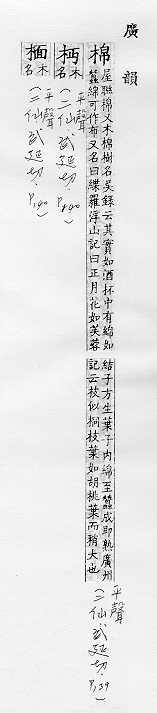 廣韻
棉
屋聯棉又木棉樹名吳録云其實如酒杯中有綿如
蠶綿可作布又名曰緤羅浮山記曰正月花如芙蓉
結子方生葉子內綿至蠶成即熟廣州
記云枝似桐枝葉如胡桃葉而稍大也
平聲
(二仙.武延切.P.139)
木
名
平聲
(二仙.武延切.P.140)
㮌
木
名
平聲
(二仙.武延切.P.140)